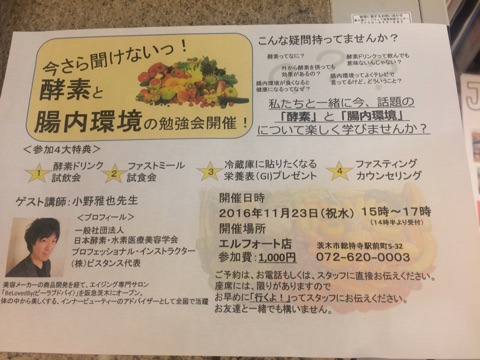 今さら聞けないっ！
酵素と
腸内環境の勉強会開催！
こんな疑問持ってませんか？
酵素ってなに？
酵素ドリンクって飲んでも
意味ないんじゃない？
外から酵素を摂っても
効果があるの？
腸内環境が良くなると
健康になるってなぜ？
腸内環境ってよくテレビで
言ってるけど、どういうこと？
私たちと一緒に今、話題の
「酵素」と「腸内環境」
について楽しく学びませんか？
＜参加4大特典＞
1 酵素ドリンク
試飲会
2 ファストミール
試食会
3 冷蔵庫に貼りたくなる
栄養表(GI)プレゼント
4 ファスティング
カウンセリング
ゲスト講師：小野雅也先生
＜プロフィール＞
一般社団法人
日本酵素・水素医療美容学会
プロフェッショナル・インストラクター
(株)ビスタンス代表
美容メーカーの商品開発を経て、エイジング専門サロン
「BeLovedBy(ビーラブドバイ)」を阪急茨木にオープン。
体の中から美しくする、インナービューティーのアドバイザーとして全国で活躍
開催日時
2016年11月23日(祝水) 15時～17時
(14時半より受付)
開催場所
エルフォート店
茨木市総持寺駅前町5-32
参加費：1,000円
072-620-0003
ご予約は、お電話もしくは、スタッフに直接お伝えください。
座席には、限りがありますので
お早めに「行くよ！」ってスタッフにお伝えください。
お友達と一緒でも構いません。